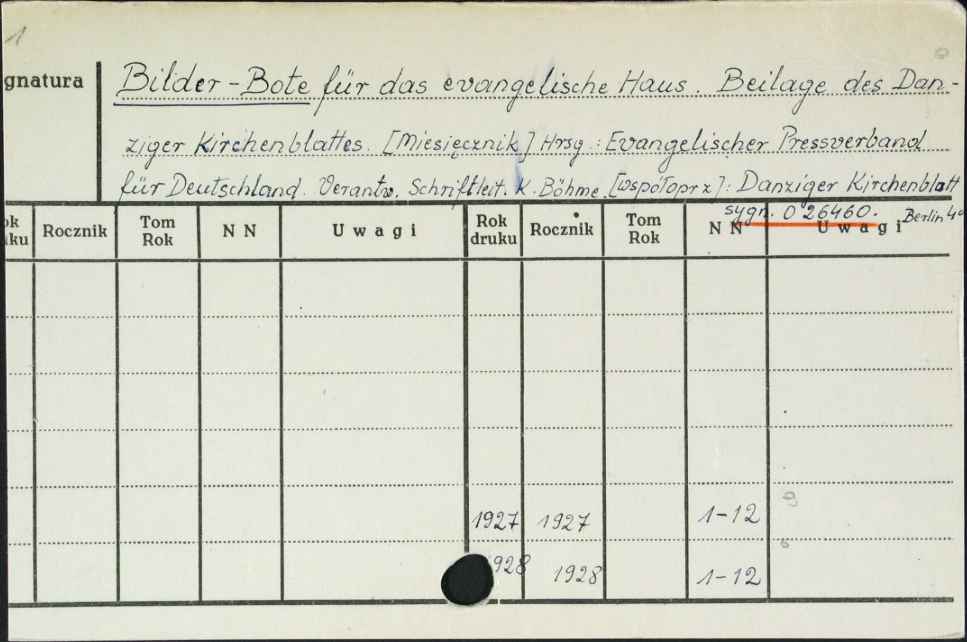 1
gnatura
Bilder-Bote für das evangelische Haus. Beilage des Dan-
ziger Kirchenblattes. [Miesięcznik] Hrsg.: Evangelischer Pressverband
für Deutschland. Verantw. Schriftleit. K. Böhme. [współopr z]: Danziger Kirchenblatt
sygn. 026460. Berlin 4°
ok ku Rocznik Tom Rok NN Uwagi Rok druku Rocznik Tom Rok NN Uwagi
1927 1927 1-12
1928 1928 1-12